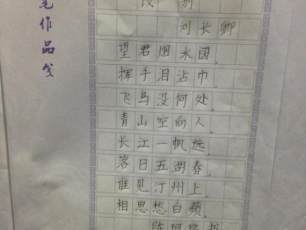 作品笺
刘长卿
望君烟水阔
挥手泪沾巾
飞鸟没何处
青山空向人
长江一帆远
落日五湖春
谁见汀州上
相思愁白蘋